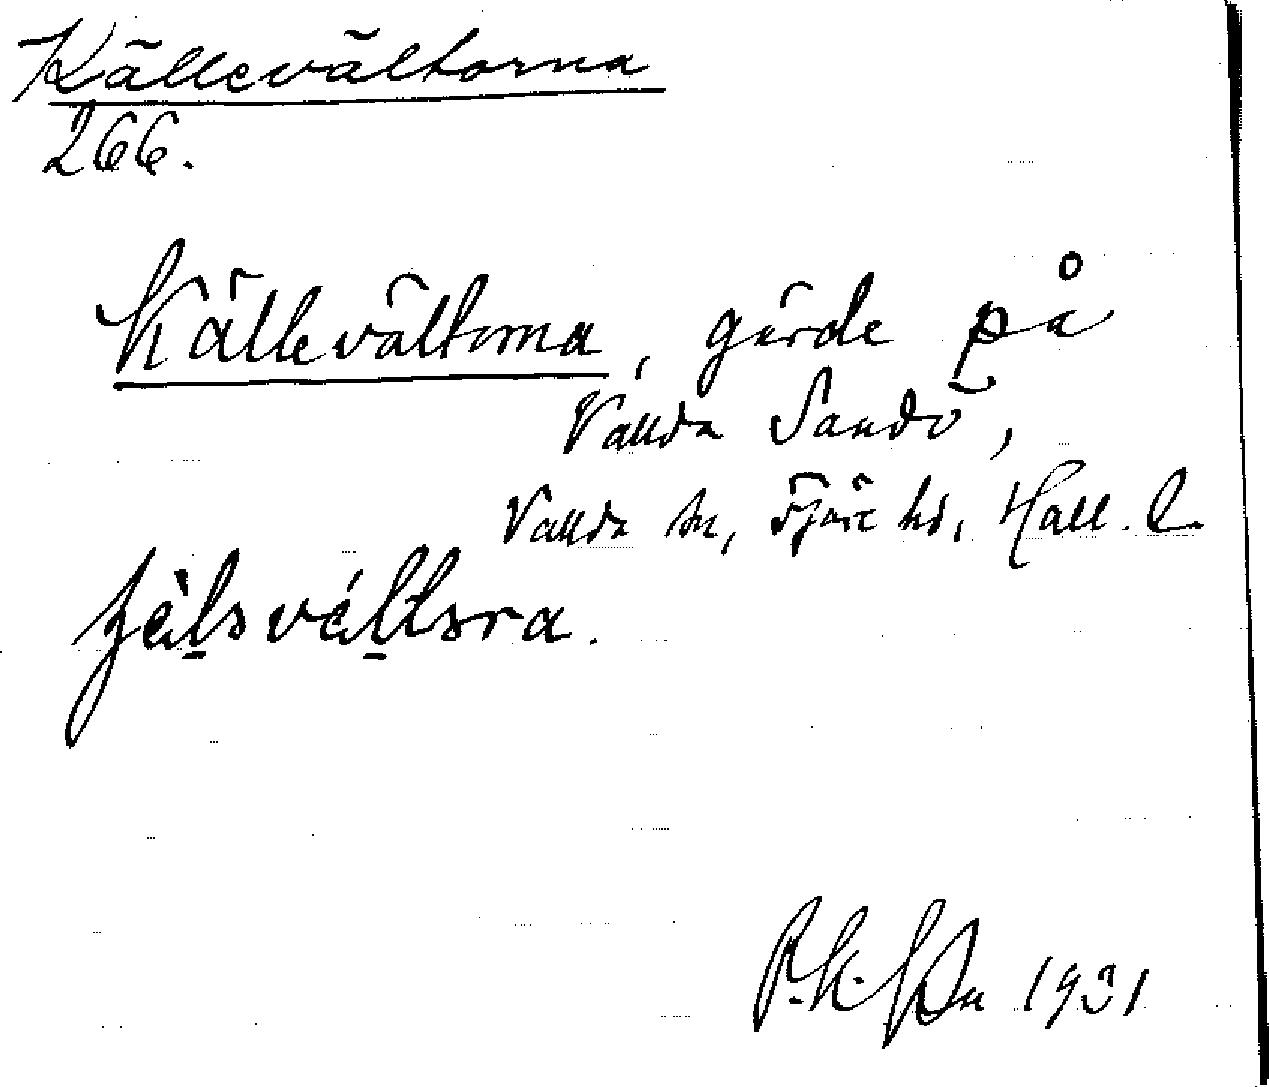 Källevältorna
266.
Källevältorna, gärde på
Vallda Sandö,
Vallda sn, Fjäre hd, Hall. l.
jälsvältsra.
1931